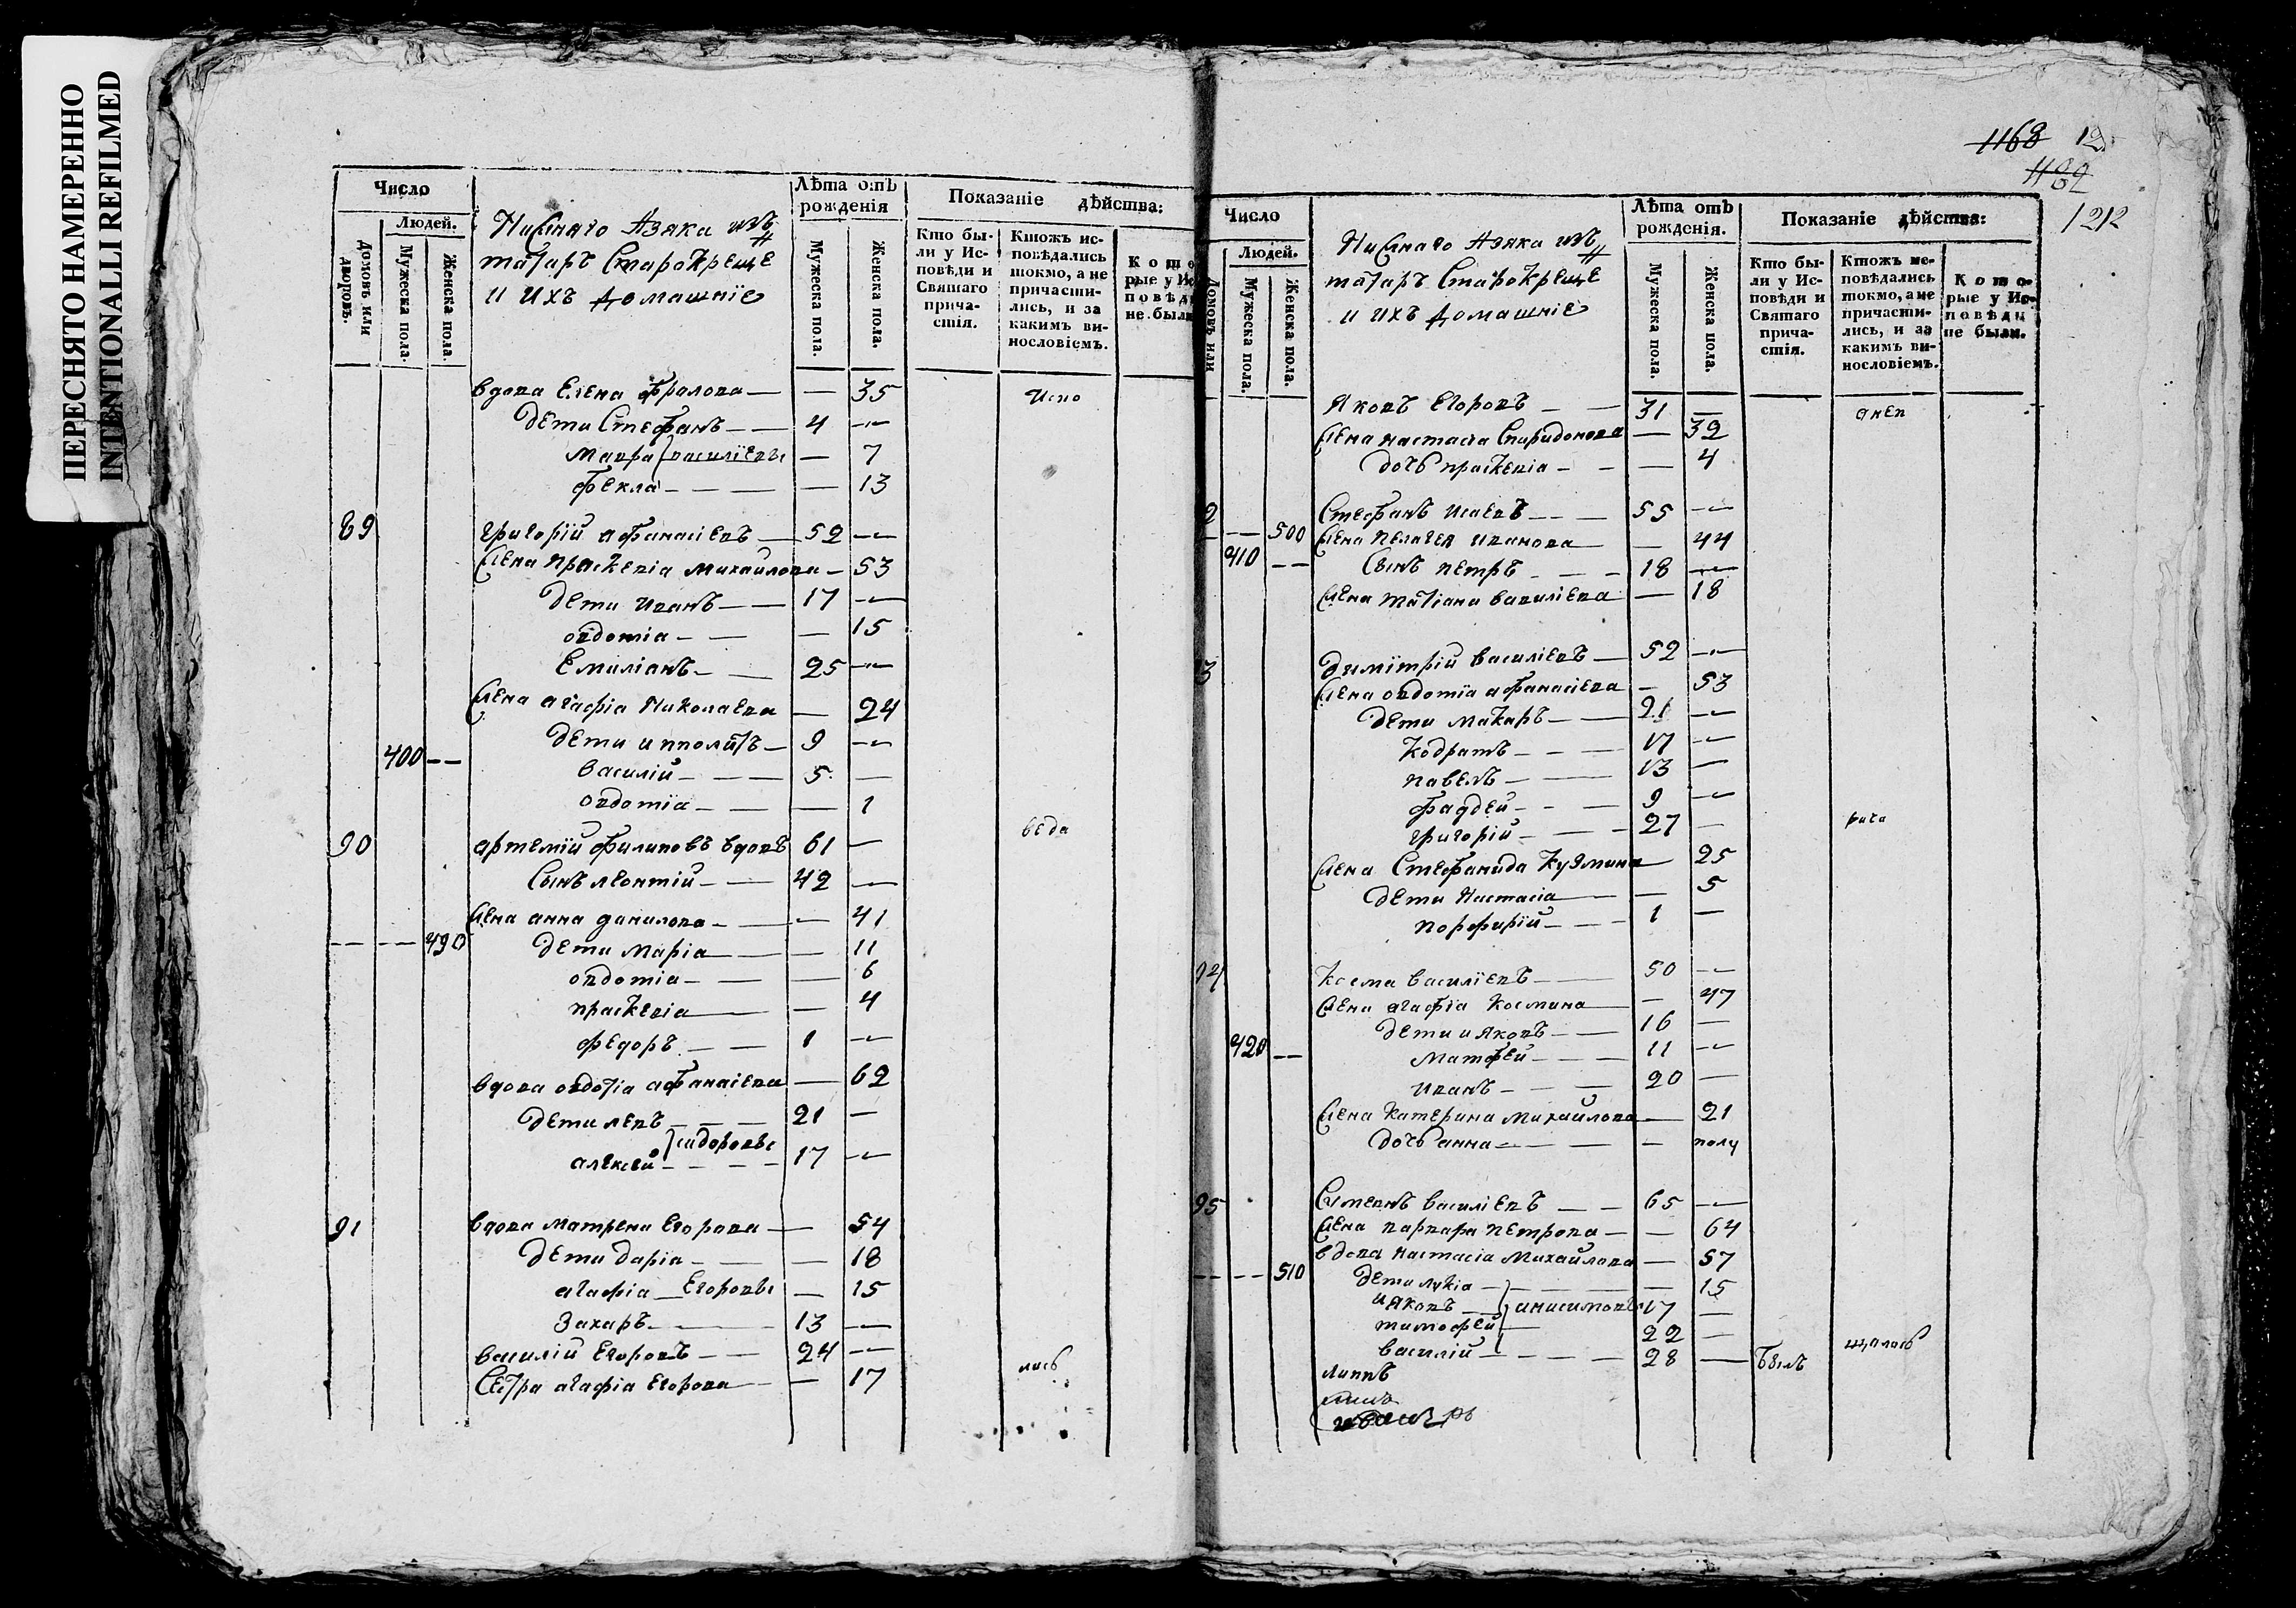 ПЕРЕСНЯТО НАМЕРЕННО
INTENTIONALLI REFILMED
Число
Людей.
Домовъ или дворовъ.
Мужеска пола.
Женска пола.
Нижняго Азяка изъ
татаръ Старокреще
и ихъ домашніе
Лѣта отъ рожденія
Мужеска пола.
Женска пола.
Показаніе дѣйства:
Кто были у Исповѣди и Святаго причастія.
Ктожъ исповѣдались токмо, а не причастились, и за какимъ винословіемъ.
Которые у Исповѣди не были
вдова Елена Фролова — — 35 Испо
дети Стефанъ — 4 —
Мавра василіевы — 7
Фекла — — 13
89 григорій афанасіевъ — 52 —
жена праскевіа михайлова — 53
дети иванъ — 17 —
овдотіа — — 15
Емиліанъ — 25 —
жена агафіа Николаева — 24
дети ипполитъ — 9 —
400 — василій — 5 —
овдотіа — — 1
веда
90 артемій филиповъ вдовъ 61 —
сынъ леонтій — 42 —
жена анна данилова — — 41
— — 490 дети Маріа — — 11
овдотіа — — 6
праскевіа — — 4
федоръ — 1 —
вдова овдотіа афанасіева — 62
дети левъ — 21 —
сидоровы
алексей — 17 —
91 вдова матрена Егорова — 54
дети даріа — — 18
агафіа — Егоровы — 15
Захаръ — 13 —
василій Егоровъ — 24 —
лись
Сестра агафіа Егорова — 17
1168 12
1182
1212
Число
Людей.
Домовъ или
Мужеска пола.
Женска пола.
Нижняго Азяка изъ
татаръ Старокреще
и ихъ домашніе
Лѣта отъ рожденія.
Мужеска пола.
Женска пола.
Показаніе дѣйства:
Кто были у Исповѣди и Святаго причастія.
Ктожъ исповѣдались токмо, а не причастились, и за какимъ винословіемъ.
Которые у Исповѣди не были.
Яковъ Егоровъ — 31 —
жена настасіа Спиридонова — 32
дочь праскевіа — — 4
2 Стефанъ Исаевъ — 55 —
— 500 жена пелагея иванова — 44
410 — Сынъ петръ — 18 —
жена татіана василіева — 18
3 димітрій василіевъ — 52 —
жена овдотіа афанасіева — 53
дети макаръ — 21 —
Кодратъ — 17 —
павелъ — 13 —
фаддей — 9 —
григорій — 27 —
жена Стефанида Кузмина — 25
дети Настасіа — 5
порфирій — 1 —
94 Косма василіевъ — 50 —
жена агафіа Космина — 47
дети ияковъ — 16 —
420 — матфей — 11 —
иванъ — 20 —
жена катерина михайлова — 21
дочь анна — — полу
95 Симеонъ василіевъ — 65 —
жена варвара петрова — — 64
вдова настасіа Михайлова — 57
— — 510 дети лукіа — — 15
ияковъ анисимовы 17 —
тимофей 22 —
василій — 28 — былъ